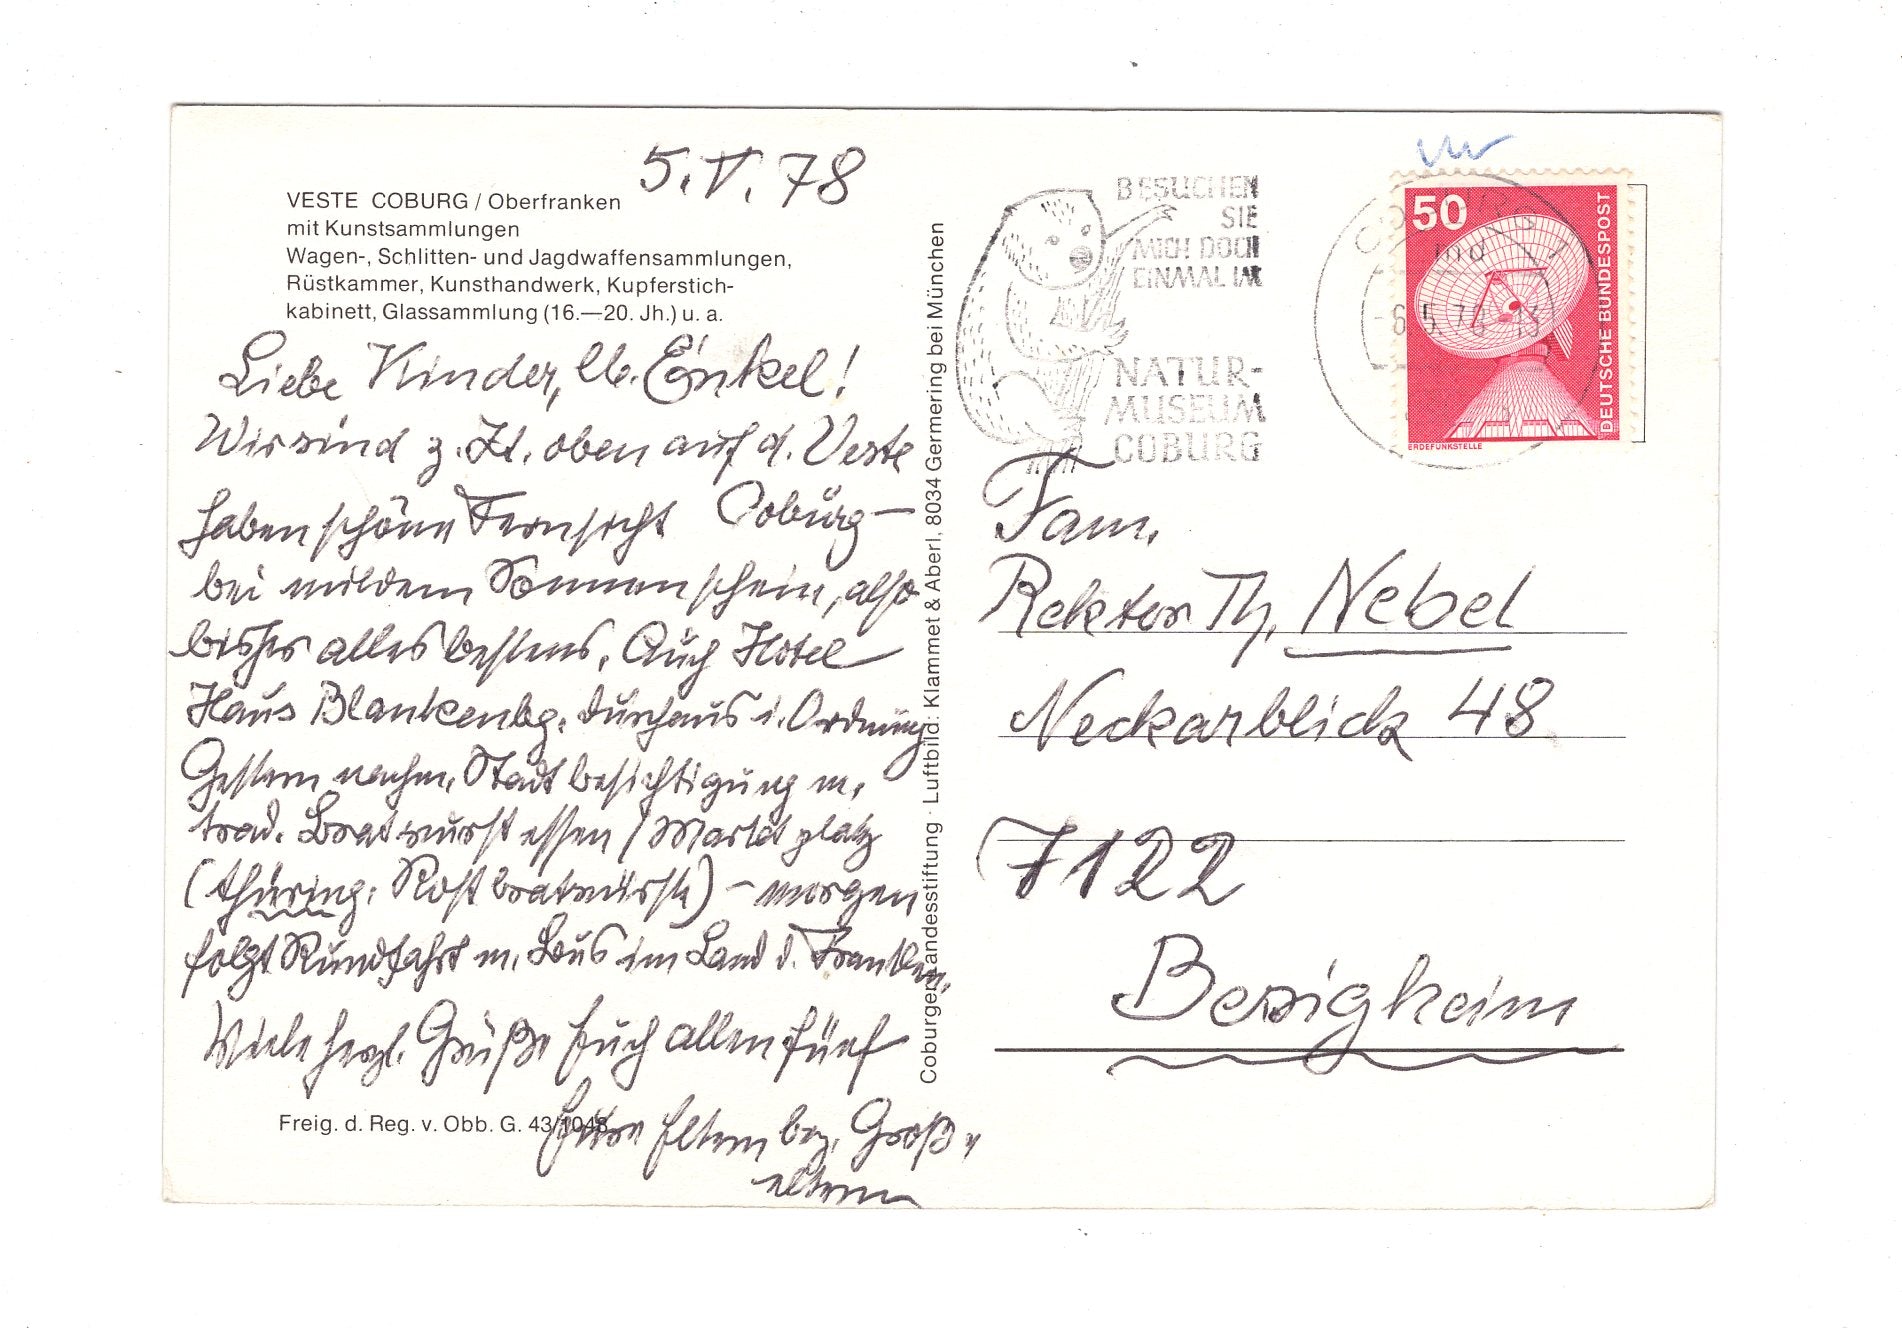 5.V.78
VESTE COBURG / Oberfranken
mit Kunstsammlungen
Wagen-, Schlitten- und Jagdwaffensammlungen,
Rüstkammer, Kunsthandwerk, Kupferstich-
kabinett, Glassammlung (16.—20. Jh.) u. a.
Liebe Kinder, lb. Enkel!
Wir sind z. Zt. oben auf d. Veste
Coburg –
haben schöne Fernsicht
bei mildem Sonnenschein, also
bisher alles bestens. Auch Hotel
Haus Blankenbg. durchaus i. Ordnung
Gestern nachm. Stadtbesichtigung m.
trad. Bratwurstessen / Marktplatz
(thüring. Rostbratwürste) – morgen
folgt Rundfahrt m. Bus im Land d. Franken.
Viele herzl. Grüße Euch allen fünf
Eure Eltern bez. Groß-
eltern
Freig. d. Reg. v. Obb. G. 43/1048
Coburger Landesstiftung · Luftbild: Klammet & Aberl, 8034 Germering bei München
BESUCHEN
SIE
MICH DOCH
EINMAL IM
NATUR-
MUSEUM
COBURG
COBURG 1
md
-6.5.78-13
50
DEUTSCHE BUNDESPOST
ERDEFUNKSTELLE
Fam.
Rektor Th. Nebel
Neckarblick 48
7122
Besigheim